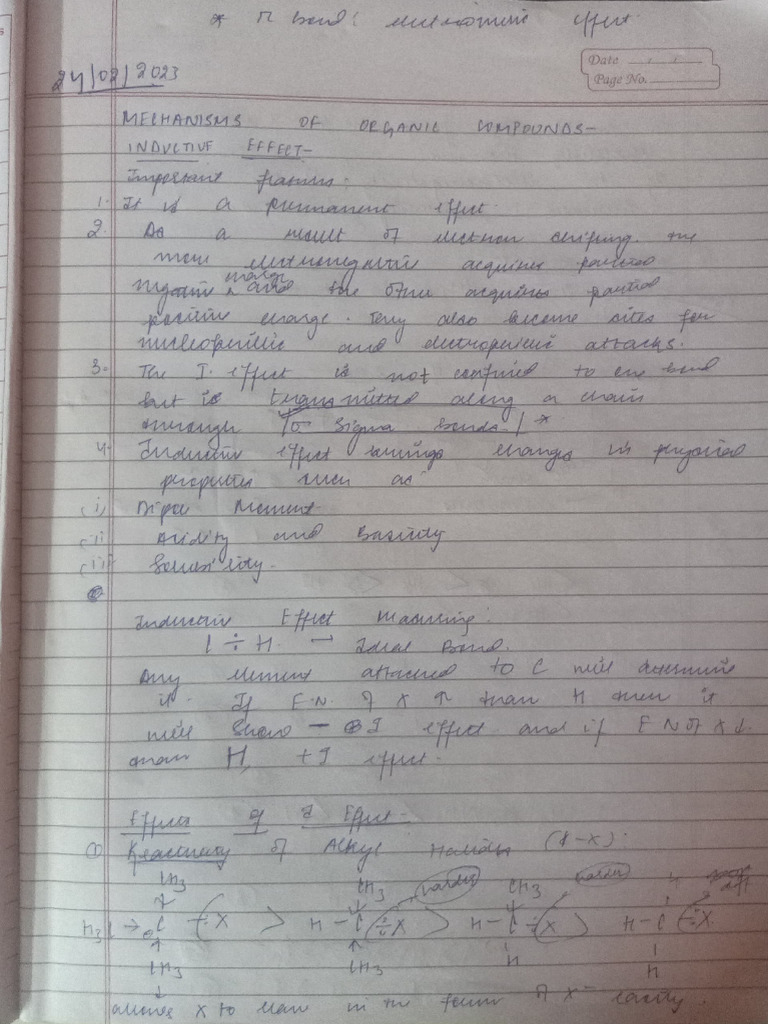 * π bond: electromeric effect
24/02/2023
Date
Page No.
MECHANISMS OF ORGANIC COMPOUNDS-
INDUCTIVE EFFECT-
Important features:
1. It is a permanent effect.
2. As a result of electron shifting, the
more electronegative acquires partial
negative charge and the other acquires partial
positive charge. They also become sites for
nucleophilic and electrophilic attacks.
3. The I effect is not confined to one bond
but is transmitted along a chain
through σ sigma bonds. *
4. Inductive effect brings changes in physical
properties such as
(i) Dipole Moment
(ii) Acidity and Basicity
(iii) Solubility.
Inductive Effect Measuring:
C ÷ H → Ideal Bond.
Any element attached to C will determine
it. If E.N. of X ↑ than H then it
will show - I effect and if E N of X ↓
than H, +I effect.
Effects of I Effect-
① Reactivity of Alkyl Halides (R-X).
CH3 CH3 harder CH3 harder H
H3C → C ÷ X > H - C ÷ X > H - C ÷ X > H - C ÷ X
CH3 CH3 H H
allows X to leave in the form of X⁻ easily.